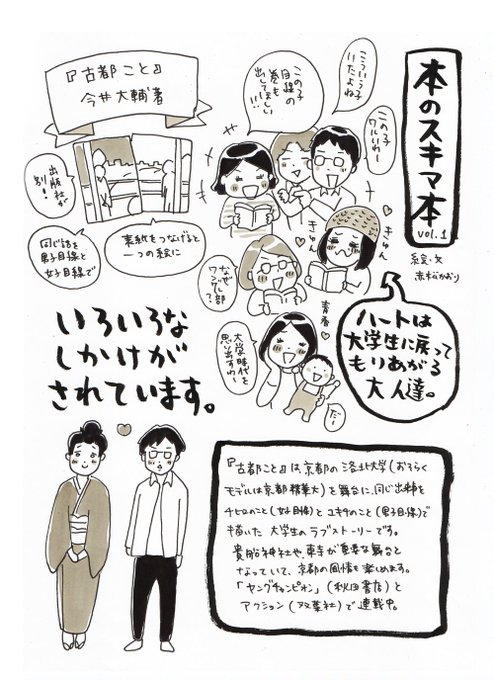 本のスキマ本
vol.1
絵・文
赤松かおり
『古都こと』
今井大輔著
こういう子
いたよね
この子
目線の
巻も
出してほしい…
この子
ワルいわー
出版社が
別!
同じ話を
男子目線と
女子目線で
表紙をつなげると
一つの絵に
きゅん
きゅん
なぜ
ワンゲル部
って?
青春
大学時代を
思い出すわー
だー
ハートは
大学生に戻って
もりあがる
大人達。
いろいろな
しかけが
されています。
『古都こと』は京都の洛北大学(おそらく
モデルは京都精華大)を舞台に、同じ出来事を
チヒロのこと(女子目線)とユキチのこと(男子目線)で
描いた 大学生のラブストーリーです。
貴船神社や、東寺が重要な舞台と
なっていて、京都の風情も楽しめます。
「ヤングチャンピオン」(秋田書店)と
アクション(双葉社)で連載中。